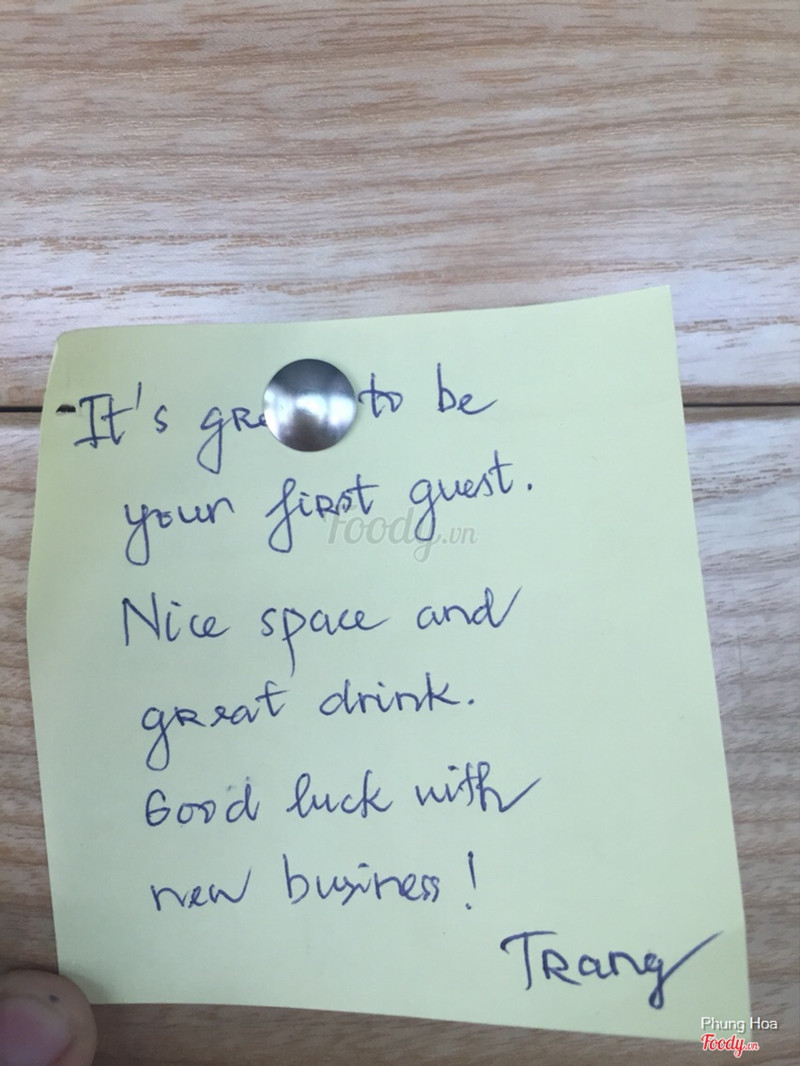 It's gre to be
your first guest.
Foody.vn
Nice space and
great drink.
Good luck with
new business!
Trang
Phung Hoa
Foody.vn